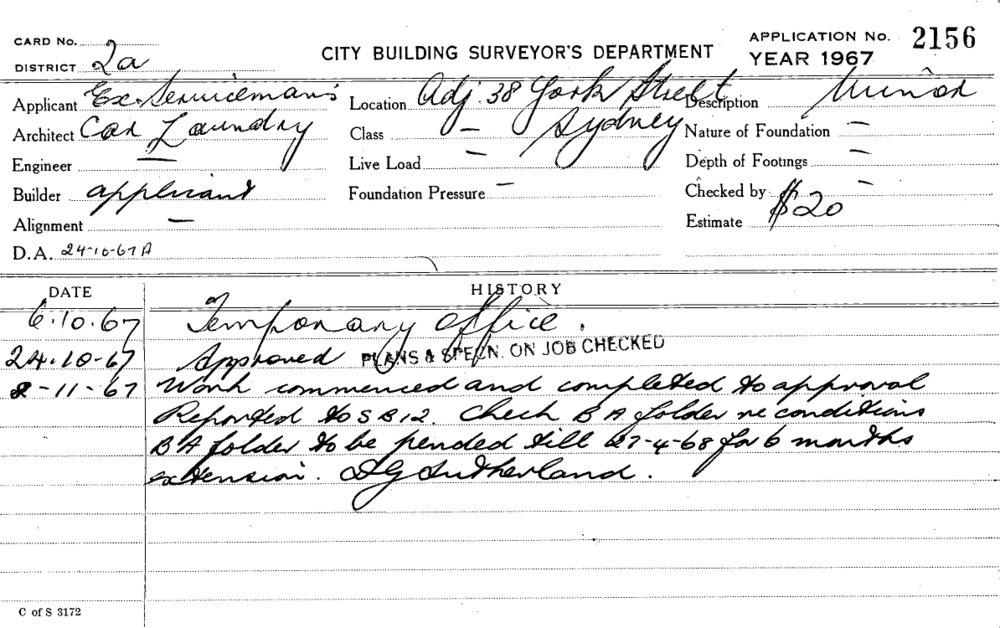 CARD No. 2a
DISTRICT
CITY BUILDING SURVEYOR'S DEPARTMENT
APPLICATION No. 2156
YEAR 1967
Applicant Ex-Serviceman's
Location Adj. 38 York Street
Description Minor
Architect Car Laundry
Class — Sydney
Nature of Foundation —
Engineer —
Live Load —
Depth of Footings —
Builder applicant
Foundation Pressure —
Checked by —
Alignment —
Estimate $20
D.A. 24-10-67 A
DATE HISTORY
6.10.67 Temporary office.
24.10-67 Approved PLANS & SPECN. ON JOB CHECKED
8-11-67 Work commenced and completed to approval
Reported to S B 12. Check B A folder re conditions
B A folder to be pended till 27-4-68 for 6 months
extension. Sutherland.
C of S 3172